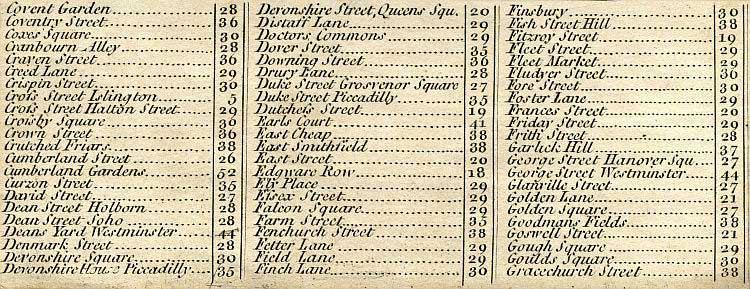 Covent Garden 28
Coventry Street 36
Coxes Square 30
Cranbourn Alley 28
Craven Street 36
Creed Lane 29
Crispin Street 30
Croſs Street Islington 5
Croſs Street Hatton Street 29
Crosby Square 30
Crown Street 36
Crutched Friars 38
Cumberland Street 26
Cumberland Gardens 52
Curzon Street 35
David Street 27
Dean Street Holborn 28
Dean Street Soho 28
Deans Yard Westminster 44
Denmark Street 28
Devonshire Square 30
Devonshire House Piccadilly 35
Devonshire Street, Queens Squ. 20
Distaff Lane 29
Doctors Commons 29
Dover Street 35
Downing Street 36
Drury Lane 28
Duke Street Grosvenor Square 27
Duke Street Piccadilly 35
Dutchefs Street 19
Earls Court 41
East Cheap 38
East Smithfield 38
East Street 20
Edgware Row 18
Ely Place 29
Eſsex Street 29
Falcon Square 29
Farm Street 27
Fenchurch Street 38
Fetter Lane 29
Field Lane 29
Finch Lane 30
Finsbury 30
Fish Street Hill 38
Fitzroy Street 19
Fleet Street 29
Fleet Market 29
Fludyer Street 36
Fore Street 30
Foster Lane 29
Frances Street 20
Friday Street 29
Frith Street 28
Garlick Hill 37
George Street Hanover Squ. 27
George Street Westminster 44
Glanville Street 27
Golden Lane 21
Golden Square 27
Goodmans Fields 38
Goswell Street 21
Gough Square 29
Goulds Square 30
Gracechurch Street 38